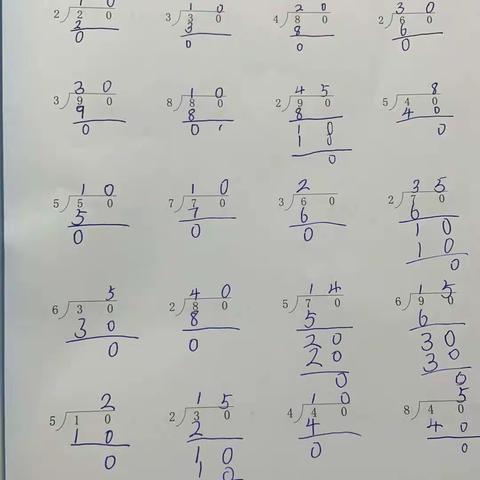 1 0 1 0 2 0 3 0
2 2 0 3 3 0 4 8 0 2 6 0
2 3 8 6
0 0 0 0
3 0 1 0 4 5 8
3 9 0 8 8 0 2 9 0 5 4 0
9 8 8 4 0
0 0 1 8 0
1 8
0
1 0 1 0 2 3 5
5 5 0 7 7 0 3 6 0 2 7 0
5 7 6 6
0 0 0 1 0
1 0
0
5 4 0 1 4 1 5
6 3 0 2 8 0 5 7 0 6 9 0
3 0 8 5 6
0 0 2 0 3 0
2 0 3 0
0 0
2 1 5 1 0 5
5 1 0 2 3 0 4 4 0 8 4 0
1 0 2 4 4 0
0 1 0 0 0
1 0